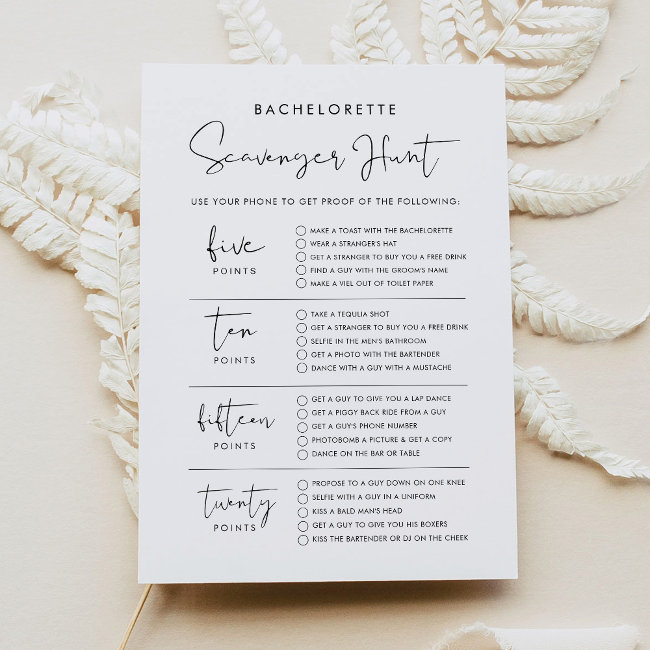 BACHELORETTE
Scavenger Hunt
USE YOUR PHONE TO GET PROOF OF THE FOLLOWING:
five
POINTS
MAKE A TOAST WITH THE BACHELORETTE
WEAR A STRANGER'S HAT
GET A STRANGER TO BUY YOU A FREE DRINK
FIND A GUY WITH THE GROOM'S NAME
MAKE A VIEL OUT OF TOILET PAPER
ten
POINTS
TAKE A TEQULIA SHOT
GET A STRANGER TO BUY YOU A FREE DRINK
SELFIE IN THE MEN'S BATHROOM
GET A PHOTO WITH THE BARTENDER
DANCE WITH A GUY WITH A MUSTACHE
fifteen
POINTS
GET A GUY TO GIVE YOU A LAP DANCE
GET A PIGGY BACK RIDE FROM A GUY
GET A GUY'S PHONE NUMBER
PHOTOBOMB A PICTURE & GET A COPY
DANCE ON THE BAR OR TABLE
twenty
POINTS
PROPOSE TO A GUY DOWN ON ONE KNEE
SELFIE WITH A GUY IN A UNIFORM
KISS A BALD MAN'S HEAD
GET A GUY TO GIVE YOU HIS BOXERS
KISS THE BARTENDER OR DJ ON THE CHEEK